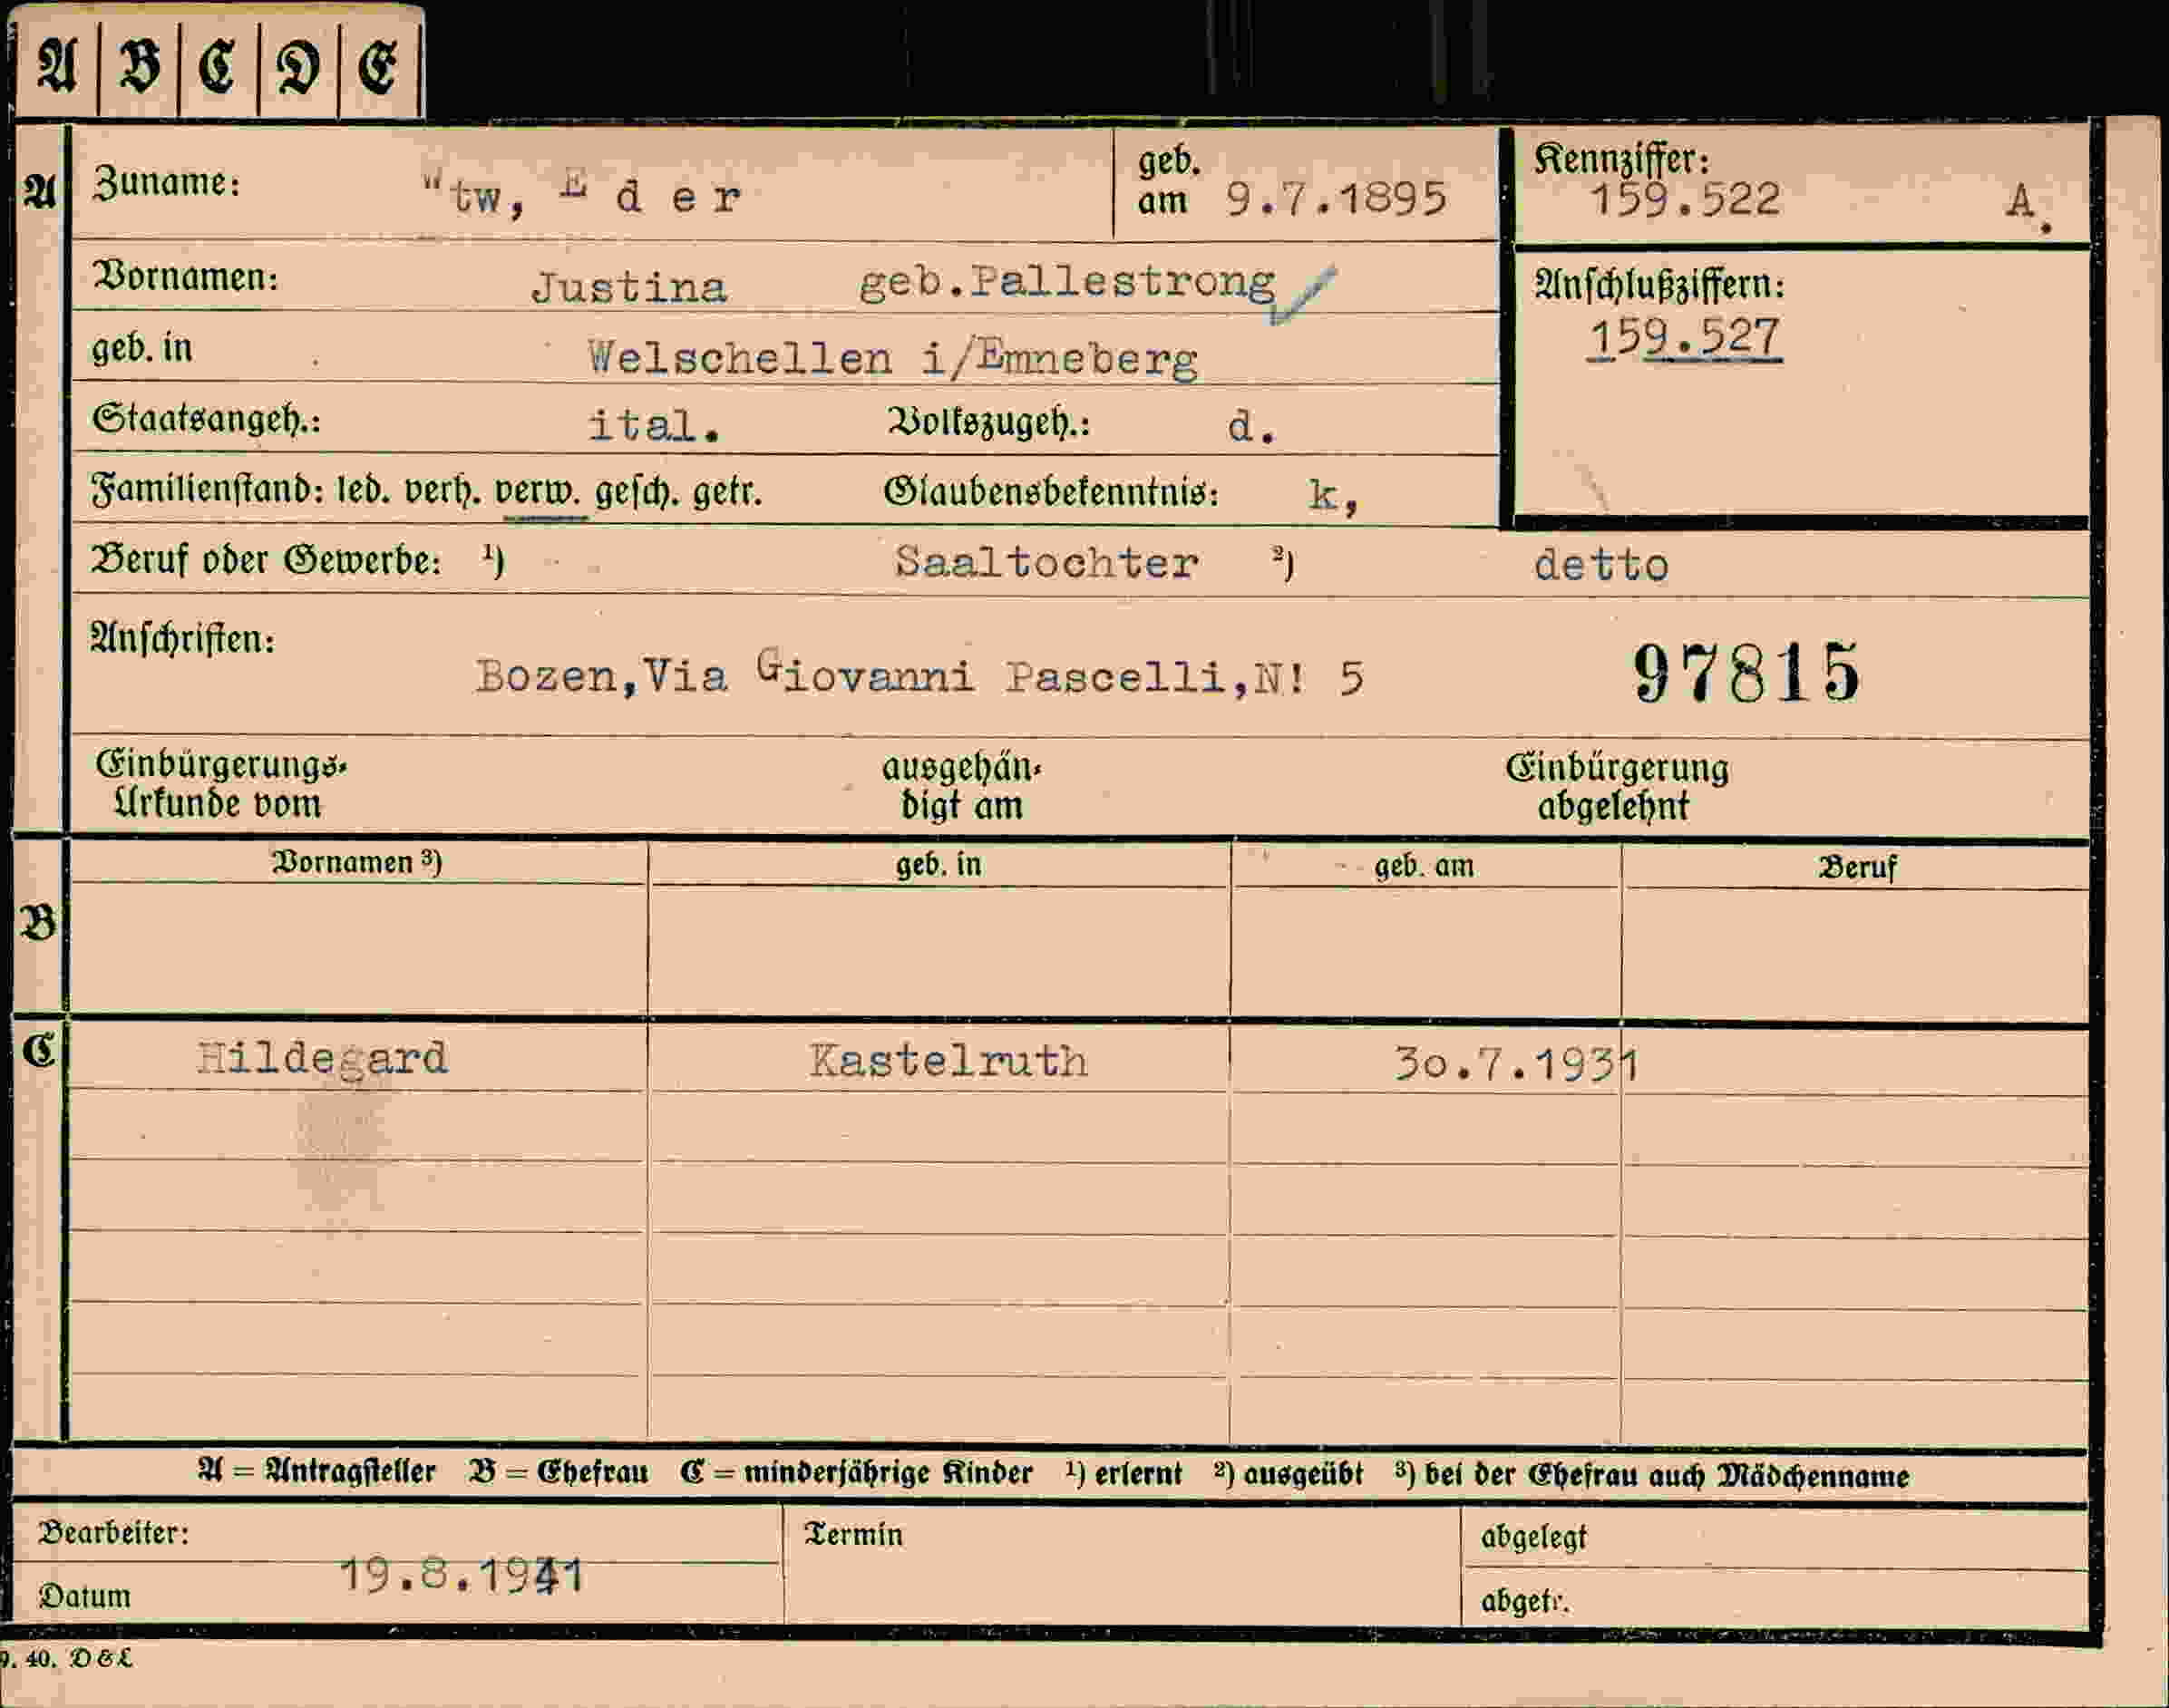 A B C D E
A Zuname: Wtw, E d e r geb. am 9.7.1895 Kennziffer: 159.522 A.
Vornamen: Justina geb.Pallestrong Anschlußziffern:
159.527
geb. in Welschellen i/Emneberg
Staatsangeh.: ital. Volkszugeh.: d.
Familienstand: led. verh. verw. gesch. getr. Glaubensbekenntnis: k,
Beruf oder Gewerbe: ¹) Saaltochter ²) detto
Anschriften:
Bozen,Via Giovanni Pascelli,N! 5 97815
Einbürgerungs-Urkunde vom ausgehändigt am Einbürgerung abgelehnt
Vornamen ³) geb. in geb. am Beruf
B
C Hildegard Kastelruth 30.7.1931
A = Antragsteller B = Ehefrau C = minderjährige Kinder ¹) erlernt ²) ausgeübt ³) bei der Ehefrau auch Mädchenname
Bearbeiter: Termin abgelegt
19.8.1941
Datum abgetr.
9. 40. D&L